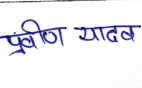 प्रवीण यादव